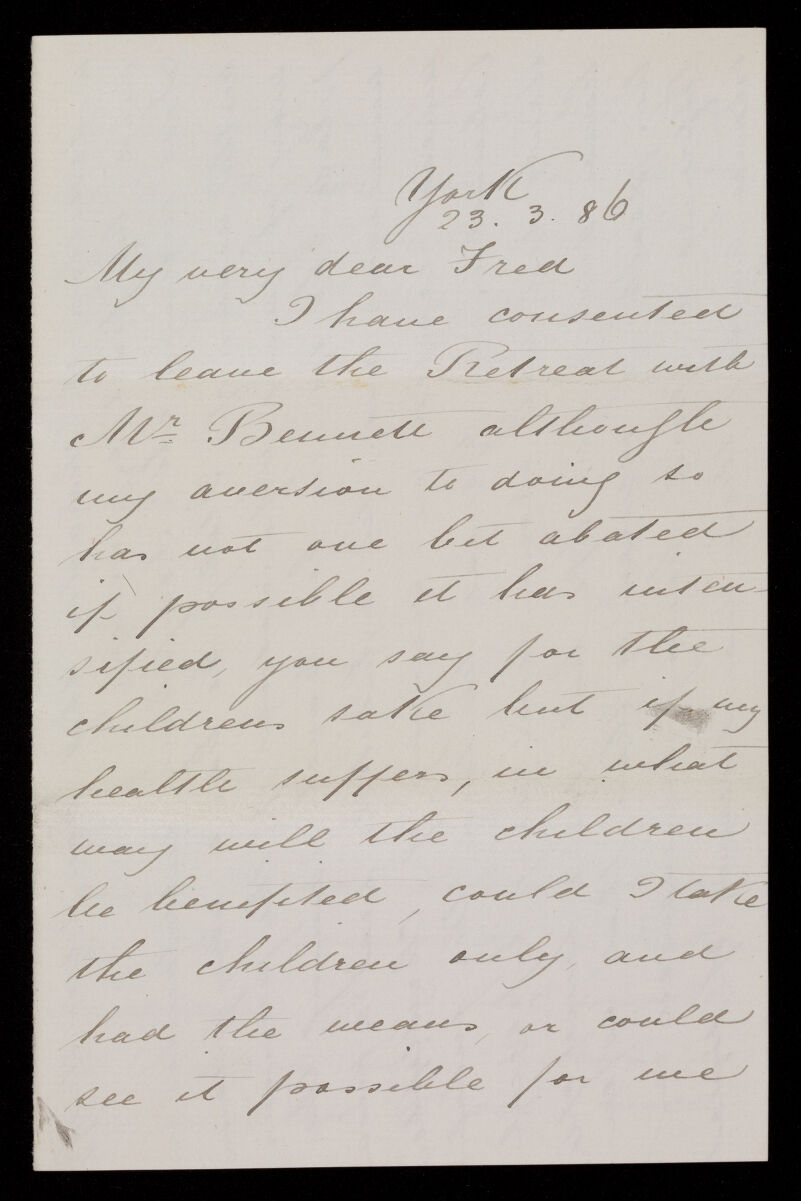 York
23. 3. 86
My very dear Fred
I have consented
to leave the Retreat with
Mr Bennett although
my aversion to doing so
has not one bit abated
if possible it has inten
sified, you say for the
childrens sake but if my
health suffers, in what
way will the children
be benefited, could I take
the children only, and
had the means, or could
see it possible for me